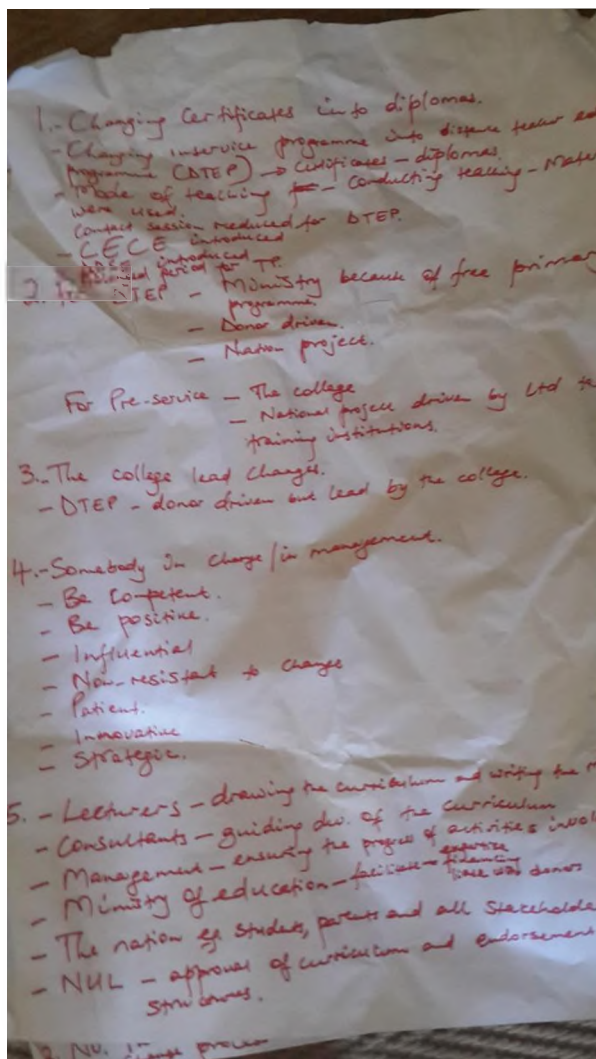 1.- Changing Certificates into diplomas.
- Changing inservice programme into distance teacher
programme (DTEP) → Certificates - diplomas.
- Mode of teaching - Conducting teaching -
were used.
Contact session reduced for DTEP.
- CECE introduced
introduced
period for TP.
2. DTEP - Ministry because of free primary
programme.
- Donor driven.
- Nation project.
For Pre-service - The college
- National project driven by Ltd
training institutions.
3.- The college lead changes.
- DTEP - donor driven but lead by the college.
4.- Somebody in charge/in management.
- Be competent.
- Be positive.
- Influential
- Non-resistant to change
- Patient.
- Innovative
- Strategic.
5. - Lecturers - drawing the curriculum and writing the
- Consultants - guiding dev. of the curriculum
- Management - ensuring the progress of activities
expertise
- Ministry of education - facilitate - financing
donors
- The nation eg students, parents and all
- NUL - approval of curriculum and endorsement
structures.